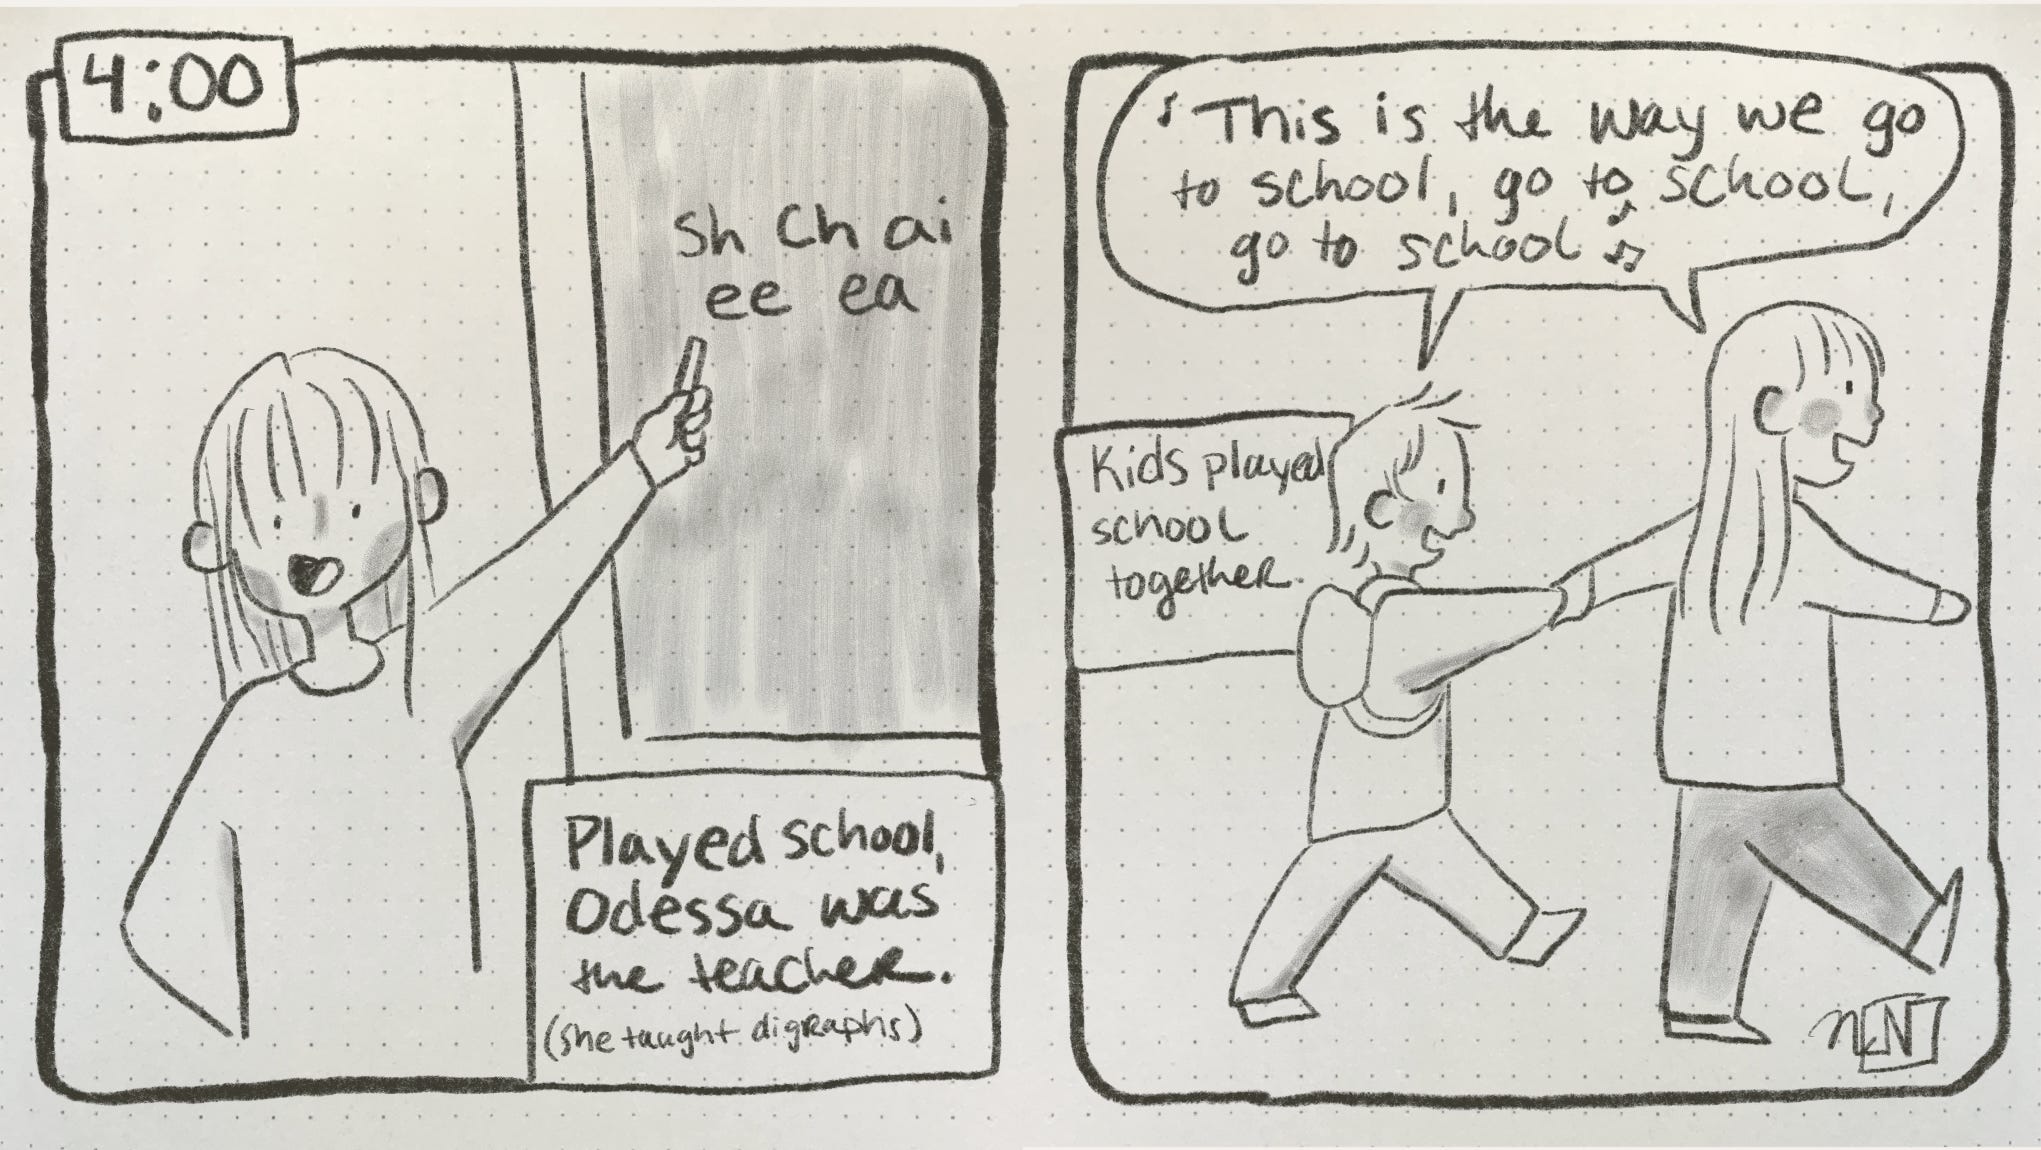 4:00
Sh Ch ai
ee ea
Played school,
Odessa was
the teacher.
(she taught digraphs)
♪ This is the way we go
to school, go to school,
go to school ♫
Kids played
school
together.